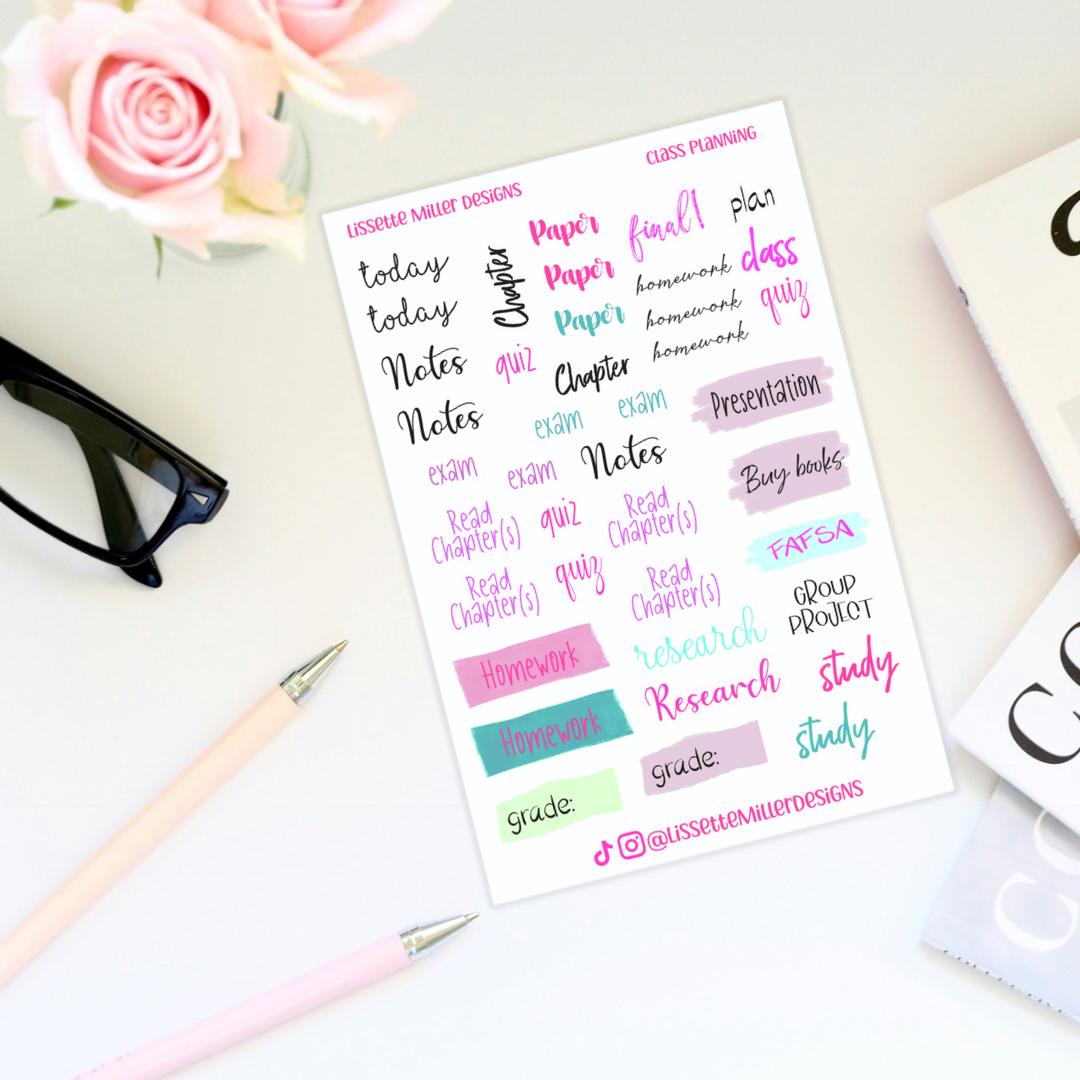 Lissette Miller Designs
CLASS PLANNING
today
today
Chapter
Paper
Paper
Paper
final!
plan
homework
homework
homework
class
quiz
Notes
quiz
Chapter
Notes
exam
exam
Presentation
exam
exam
Notes
Buy books
Read
Chapter(s)
quiz
Read
Chapter(s)
FAFSA
Read
Chapter(s)
quiz
Read
Chapter(s)
GROUP
PROJECT
Homework
research
study
Homework
Research
study
grade:
grade:
@LissetteMillerDesigns
CO
CO